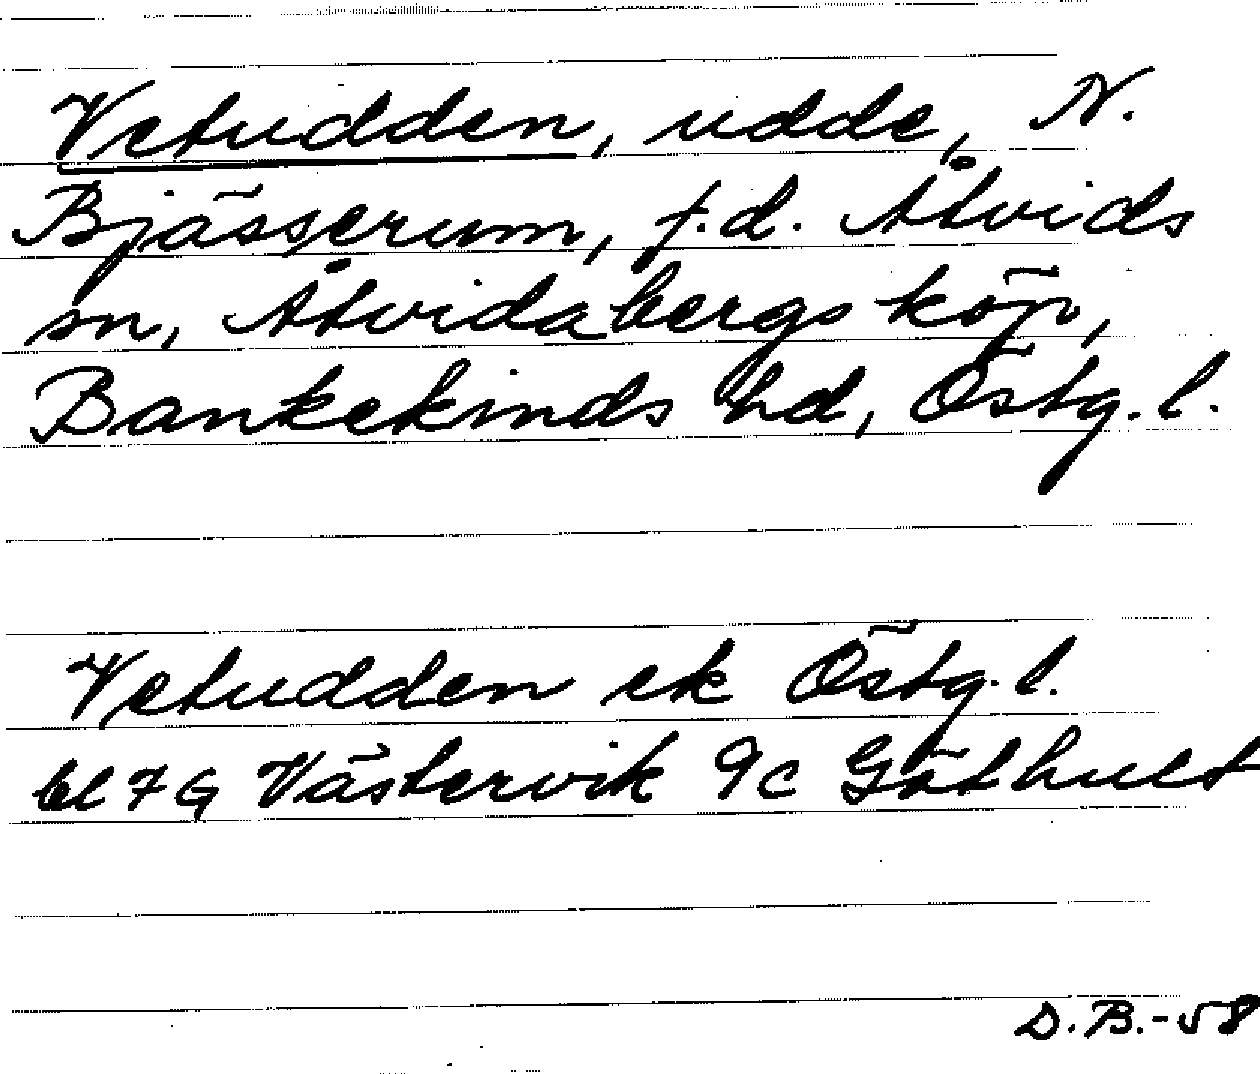 Vetudden, udde, N.
Bjässerum, f.d. Åtvids
sn, Åtvidabergs köp,
Bankekinds hd, Östg. l.
Vetudden ek Östg. l.
bl 7G Västervik 9c Göthult
D.B.-58